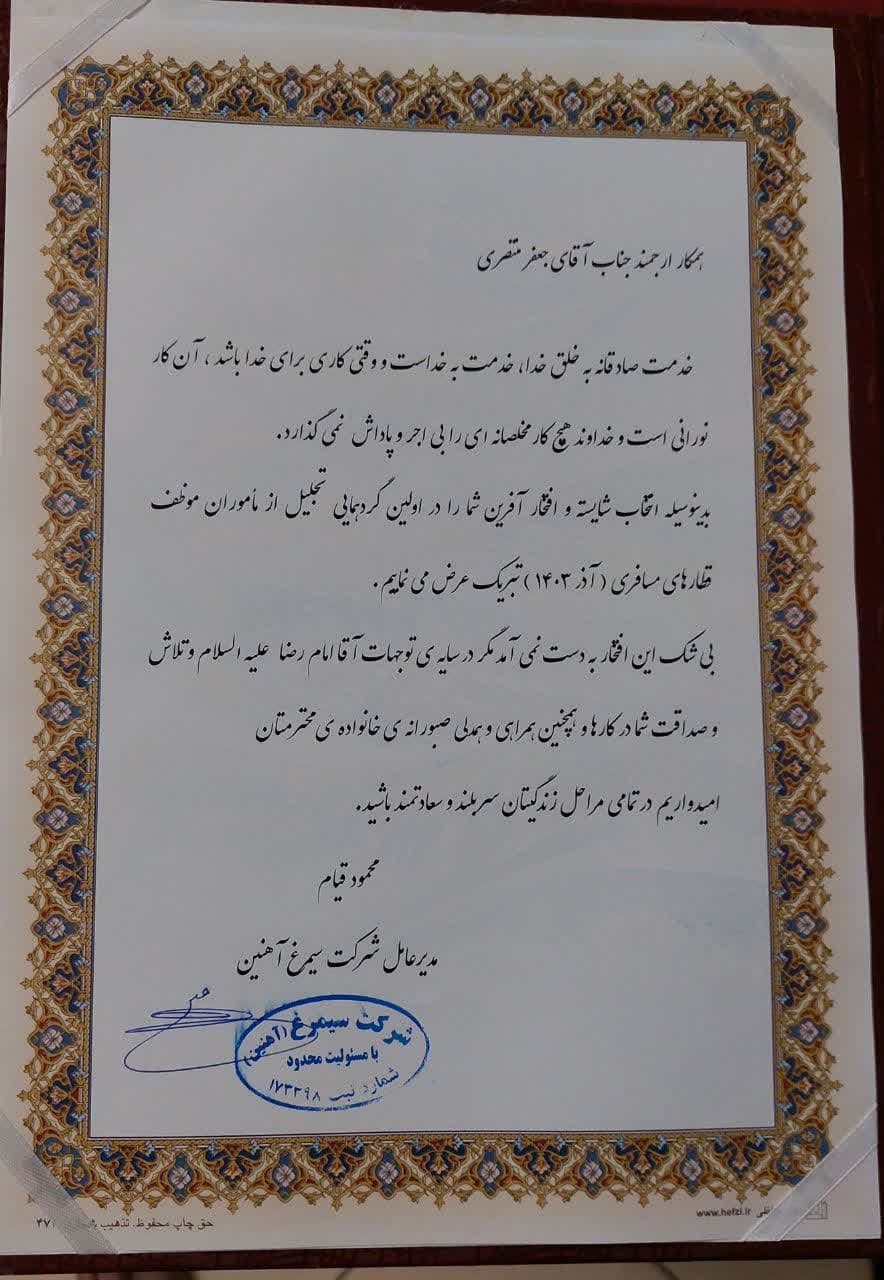 همکار ارجمند جناب آقای جعفر منتصری
خدمت صادقانه به خلق خدا، خدمت به خداست و وقتی کاری برای خدا باشد، آن کار
نورانی است و خداوند هیچ کار مخلصانه ای را بی اجر و پاداش نمی گذارد.
بدینوسیله انتخاب شایسته و افتخار آفرین شما را در اولین گردهمایی تجلیل از مأموران موظف
قطارهای مسافری (آذر ۱۴۰۳) تبریک عرض می نماییم.
بی شک این افتخار به دست نمی آمد مگر در سایه ی توجهات آقا امام رضا علیه السلام و تلاش
و صداقت شما در کارها و همچنین همراهی و همدلی صبورانه ی خانواده ی محترمتان
امیدواریم در تمامی مراحل زندگیتان سربلند و سعادتمند باشید.
محمود قیام
مدیرعامل شرکت سیمرغ آهنین
شرکت سیمرغ (آهنین)
با مسئولیت محدود
شماره ثبت ۱۷۳۳۹۸
حق چاپ محفوظ، تذهیب
www.hefzi.ir